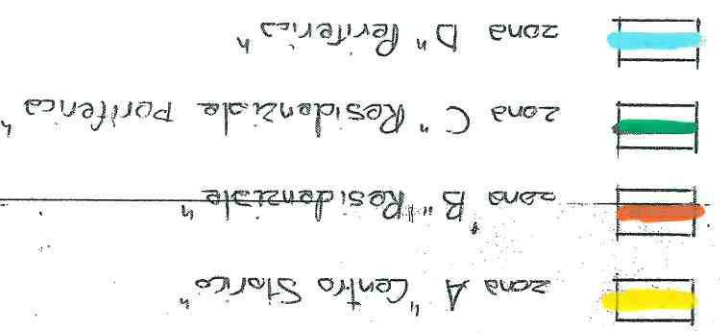 zona A "Centro Storico"
zona B "Residenziale"
zona C "Residenziale Periferica"
zona D "Periferica"